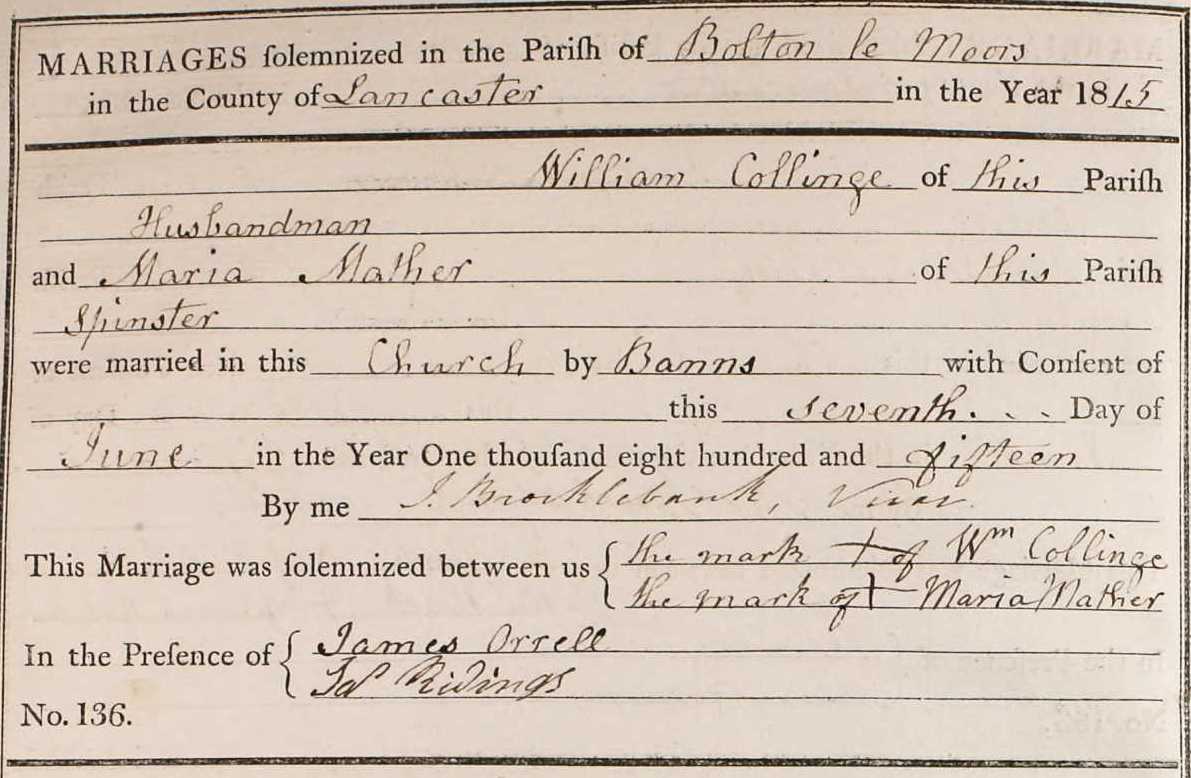 MARRIAGES ſolemnized in the Pariſh of Bolton le Moors
in the County of Lancaster in the Year 1815
William Collinge of this Pariſh
Husbandman
and Maria Mather of this Pariſh
Spinster
were married in this Church by Banns with Conſent of
this seventh. . . Day of
June in the Year One thouſand eight hundred and fifteen
By me J. Brocklebank, Vicar.
This Marriage was ſolemnized between us { the mark + of Wm Collinge
the mark of + Maria Mather
In the Preſence of { James Orrell
Jas Ridings
No. 136.